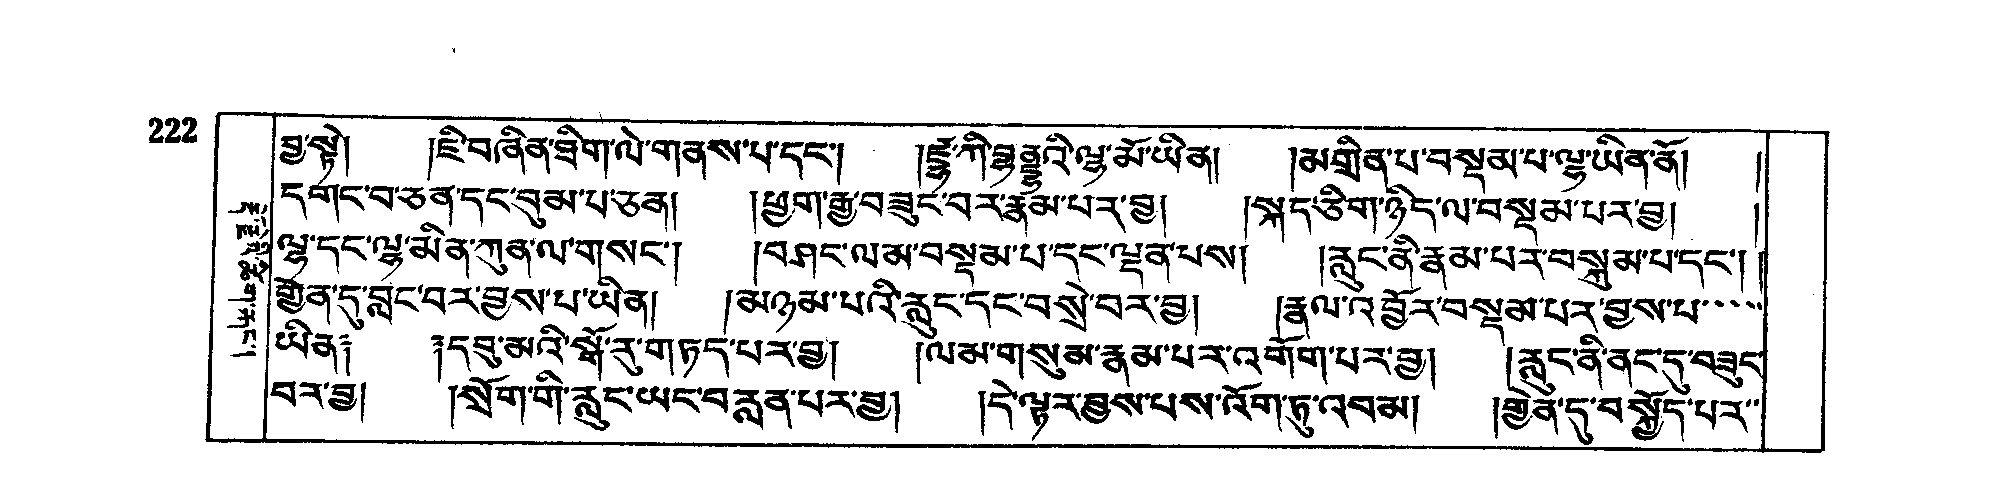 222
བྱ་སྟེ། །ཇི་བཞིན་ཐིག་ལེ་གནས་པ་དང་། །ཀི་འི་ལྷ་མོ་ཡིན། །མགྲིན་པ་བསྡམ་པ་ལྔ་ཡིན་ནོ། །
དགང་བ་ཅན་དང་བུམ་པ་ཅན། །ཕྱག་རྒྱ་བཟུང་བར་རྣམ་པར་བྱ། །སྐད་ཅིག་ཉིད་ལ་བསྡམ་པར་བྱ། །
ལྷ་དང་ལྷ་མིན་ཀུན་ལ་གསང་། །བཤང་ལམ་བསྡམ་པ་དང་ལྡན་པས། །རླུང་ནི་རྣམ་པར་བསྐུམ་པ་དང་། །
གྱེན་དུ་བླང་བར་བྱས་པ་ཡིན། །མཉམ་པའི་རླུང་དང་བསྲེ་བར་བྱ། །རྣལ་འབྱོར་བསྡམ་པར་བྱས་པ་
ཡིན༔ ༔དབུ་མའི་སྒོ་རུ་གཏད་པར་བྱ། །ལམ་གསུམ་རྣམ་པར་འགོག་པར་བྱ། །རླུང་ནི་ནང་དུ་བཟུང
བར་བྱ། །སྲོག་གི་རླུང་ཡང་བརླན་པར་བྱ། །དེ་ལྟར་བྱས་པས་འོག་ཏུ་འབམ། །གྱེན་དུ་བསྐྱོད་པར་